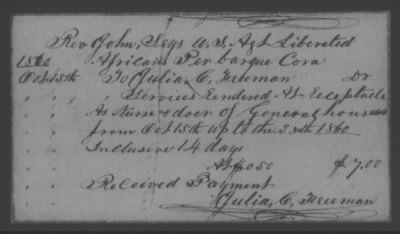 Rev John, Seys U.S. Agt Liberated
Africans Per barque Cora
1860
Oct 15th To Julia, C, Freeman Dr
" " " Services Rendered At Receptacle
" " As Nurse & doer of General house
" " from Oct 15th up to the 28th 1860
" " Inclusive 14 days
At $0.50 $7.00
Received Payment
Julia, C, Freeman